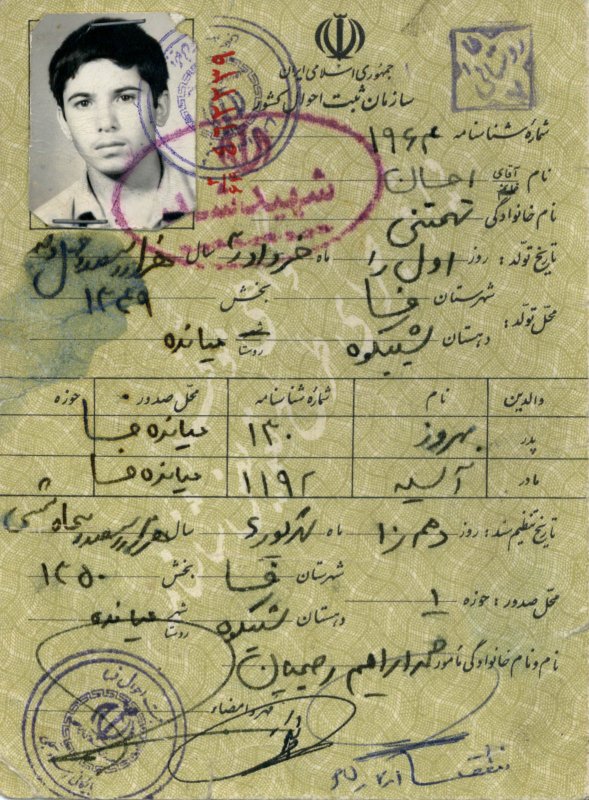 جمهوری اسلامی ایران
سازمان ثبت احوال کشور
شمارهٔ شناسنامه ۱۹۶۴
نام آقای احسان
نام خانوادگی تهمتنی
تاریخ تولد: روز اول ماه خرداد سال هزار و سیصد و چهل و نه
شهرستان فسا بخش ۱۳۴۹
محل تولد: دهستان شیبکوه روستا میانده
شهید شد
والدین نام شمارهٔ شناسنامه محل صدور: حوزه
پدر بهروز ۱۳۰ میانده فسا
مادر آسیه ۱۱۹۲ میانده فسا
تاریخ تنظیم سند: روز دهم ماه شهریور سال هزار و سیصد و پنجاه شمسی
شهرستان فسا بخش ۱۳۵۰
محل صدور: حوزه ۱ دهستان شیبکوه شهر روستا میانده
نام و نام خانوادگی مأمور محمد ابراهیم رحیمیان
مهر و امضاء